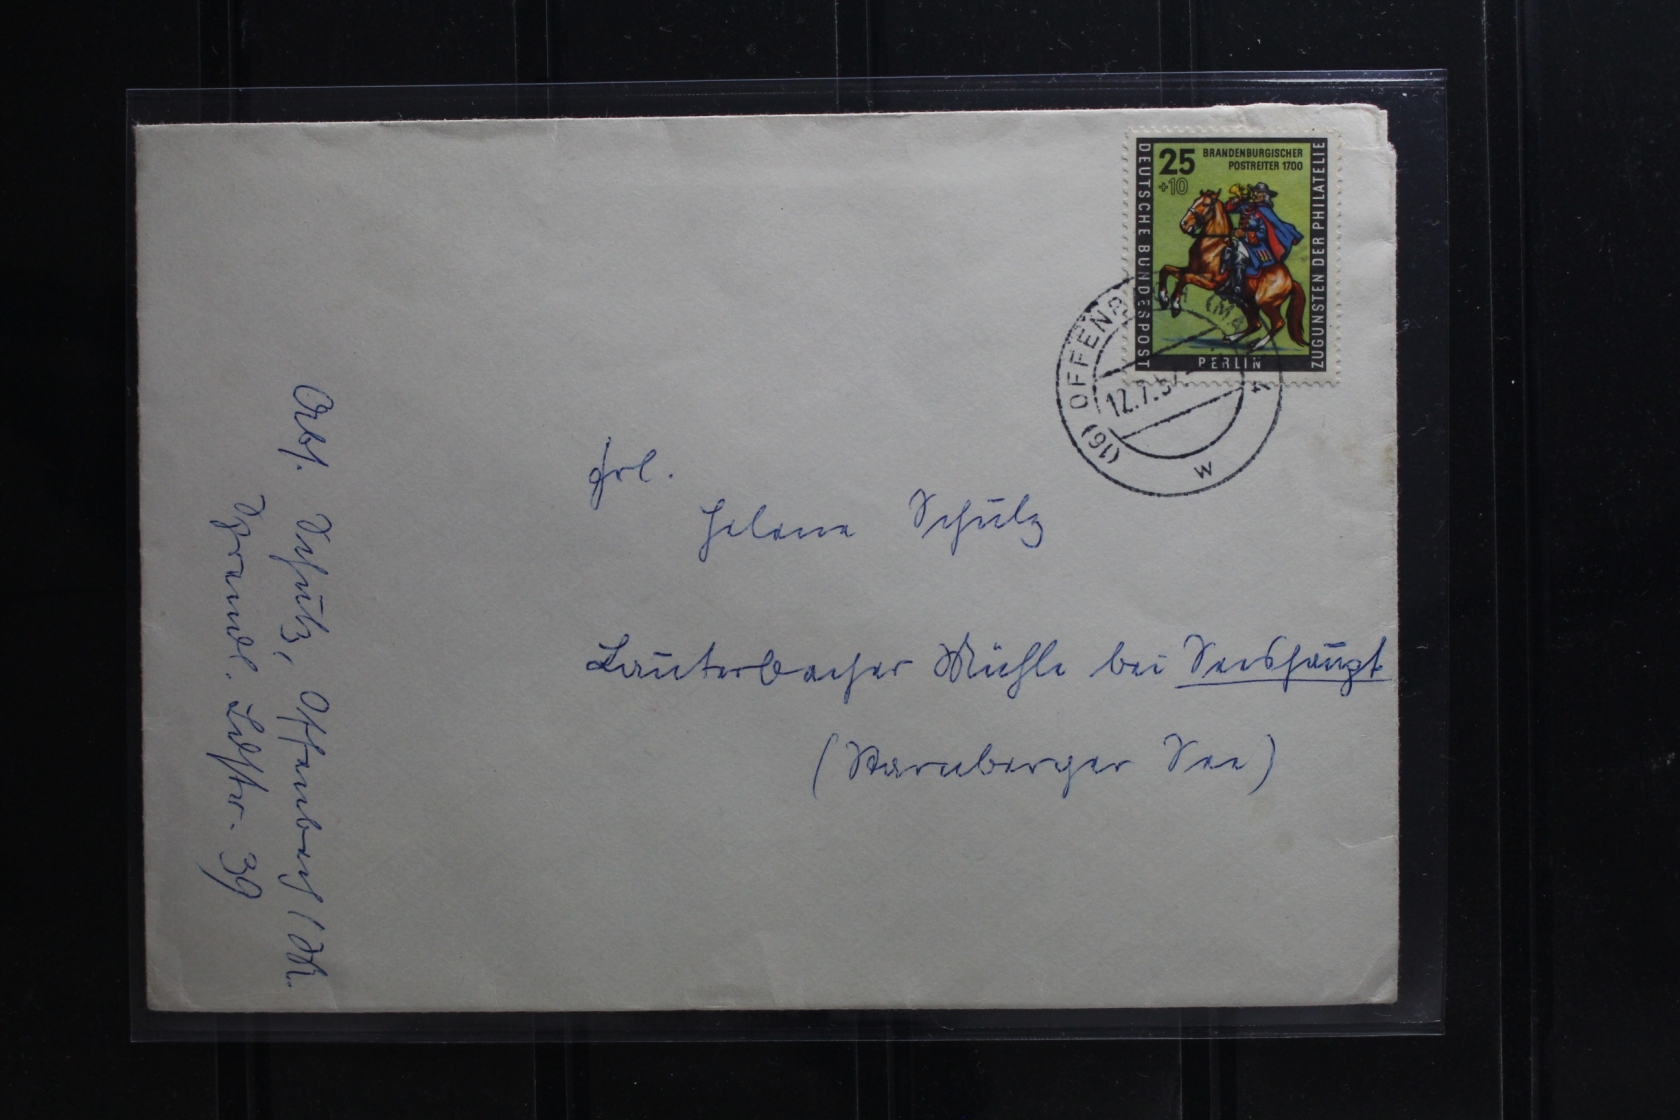 25 BRANDENBURGISCHER
+10 POSTREITER 1700
DEUTSCHE BUNDESPOST
BERLIN
ZUGUNSTEN DER PHILATELIE
(16) OFFENB (MA
12.7.57
w
Frl.
Helene Schulz
Lauterbacher Mühle bei Seeshaupt
(Starnberger See)
Abs. Schulz, Offenbach / M.
Ldstr. 39